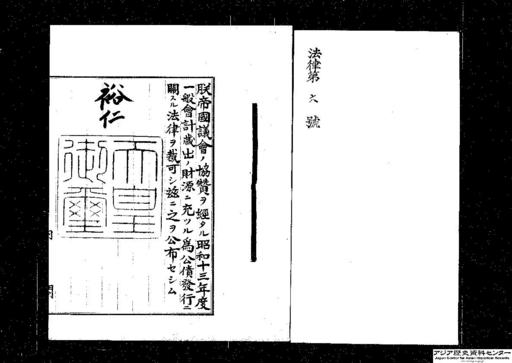 法律第六號
朕帝國議會ノ協贊ヲ經タル昭和十三年度
一般會計歲出ノ財源ニ充ツル爲公債發行ニ
關スル法律ヲ裁可シ茲ニ之ヲ公布セシム
裕仁
天皇
御璽
アジア歴史資料センター
Japan Center for Asian Historical Records